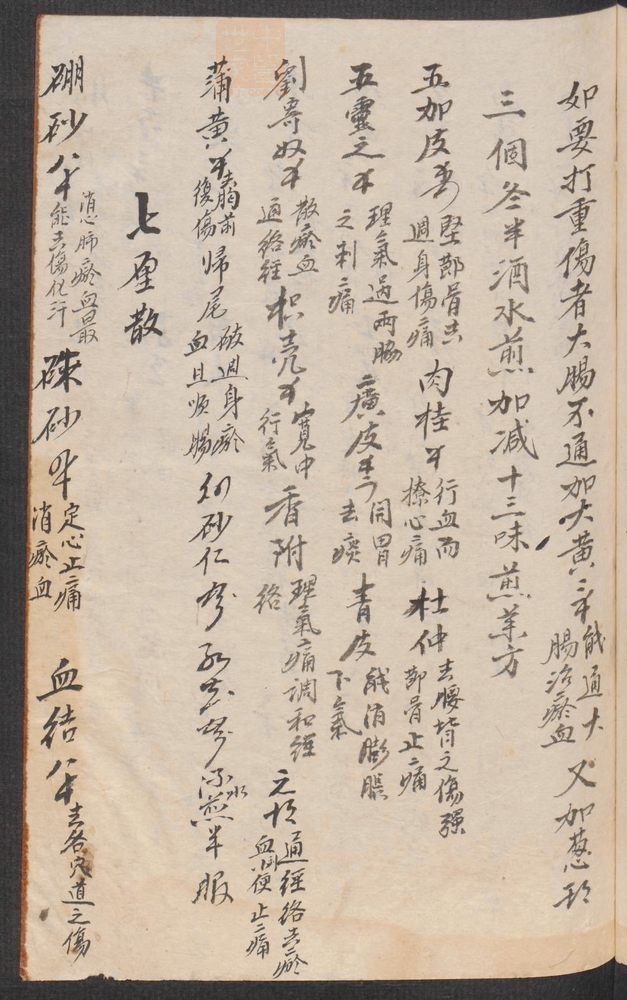 如要打重傷者大腸不通加大黃 能通大腸治瘀血 又加葱
三個冬半酒水煎加减十三味煎葉方
五加皮 堅節骨去週身傷痛 肉桂 行血而撩心痛 杜仲 去腰背之傷强節骨止痛
五靈之 理氣過兩脇之刺痛 廣皮 開胃去痰 青皮 能消膨脹下氣
劉寄奴 散瘀血通絡經 枳壳 寬中行氣 香附 理氣痛調和經絡 元胡 通經絡去瘀血 便止痛
蒲黃 去胸前復傷 歸尾 破週身瘀血且順腸 砂仁 水煎半服
七厘散
硼砂 消心肺瘀血最能去傷化行 硃砂 定心止痛消瘀血 血結 去各穴道之傷